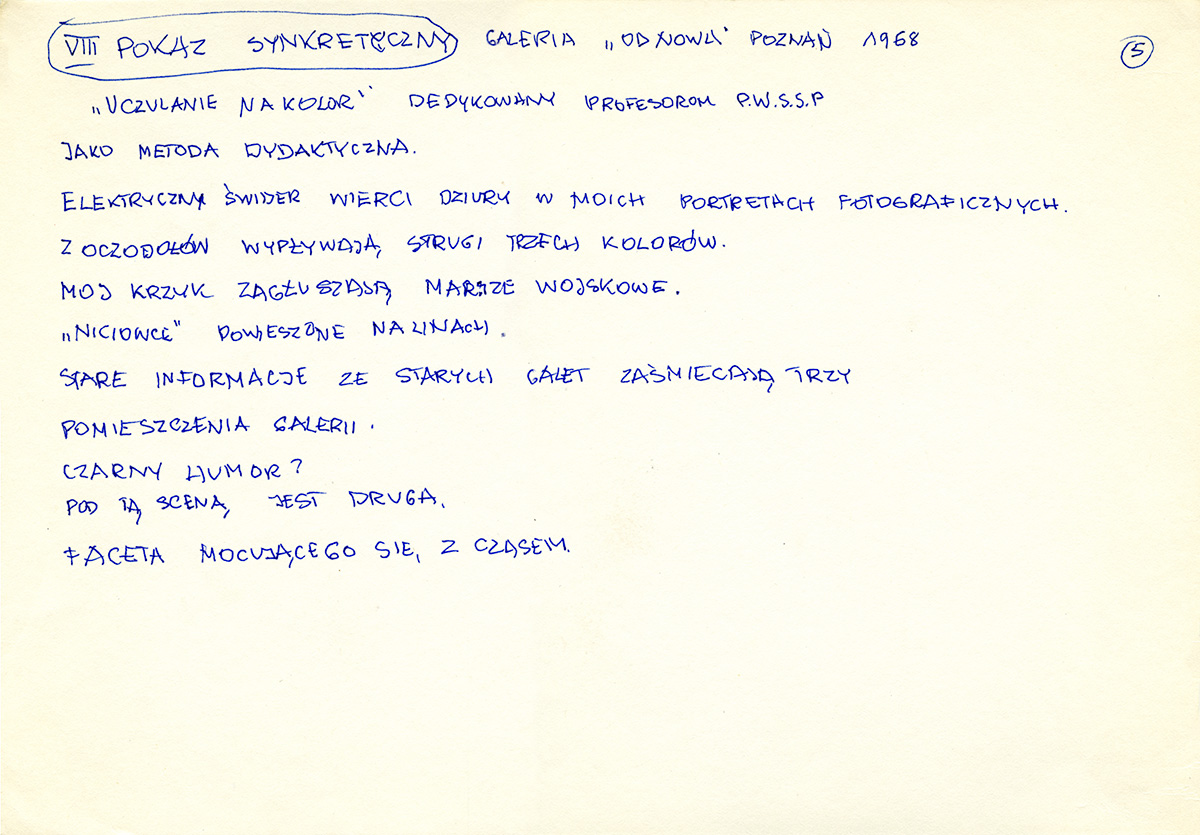 VIII POKAZ SYNKRETYCZNY GALERIA „OD NOWA" POZNAŃ 1968
5
„UCZULANIE NA KOLOR" DEDYKOWANY PROFESOROM P.W.S.S.P
JAKO METODA DYDAKTYCZNA.
ELEKTRYCZNY ŚWIDER WIERCI DZIURY W MOICH PORTRETACH FOTOGRAFICZNYCH.
Z OCZODOŁÓW WYPŁYWAJĄ STRUGI TRZECH KOLORÓW.
MOJ KRZYK ZAGŁUSZAJĄ MARSZE WOJSKOWE.
„NICIOWCE" POWIESZONE NA LINACH.
STARE INFORMACJE ZE STARYCH GALET ZAŚMIECAJĄ TRZY
POMIESZCZENIA GALERII.
CZARNY HUMOR?
POD TĄ SCENĄ JEST DRUGA.
FACETA MOCUJĄCEGO SIĘ Z CZASEM.